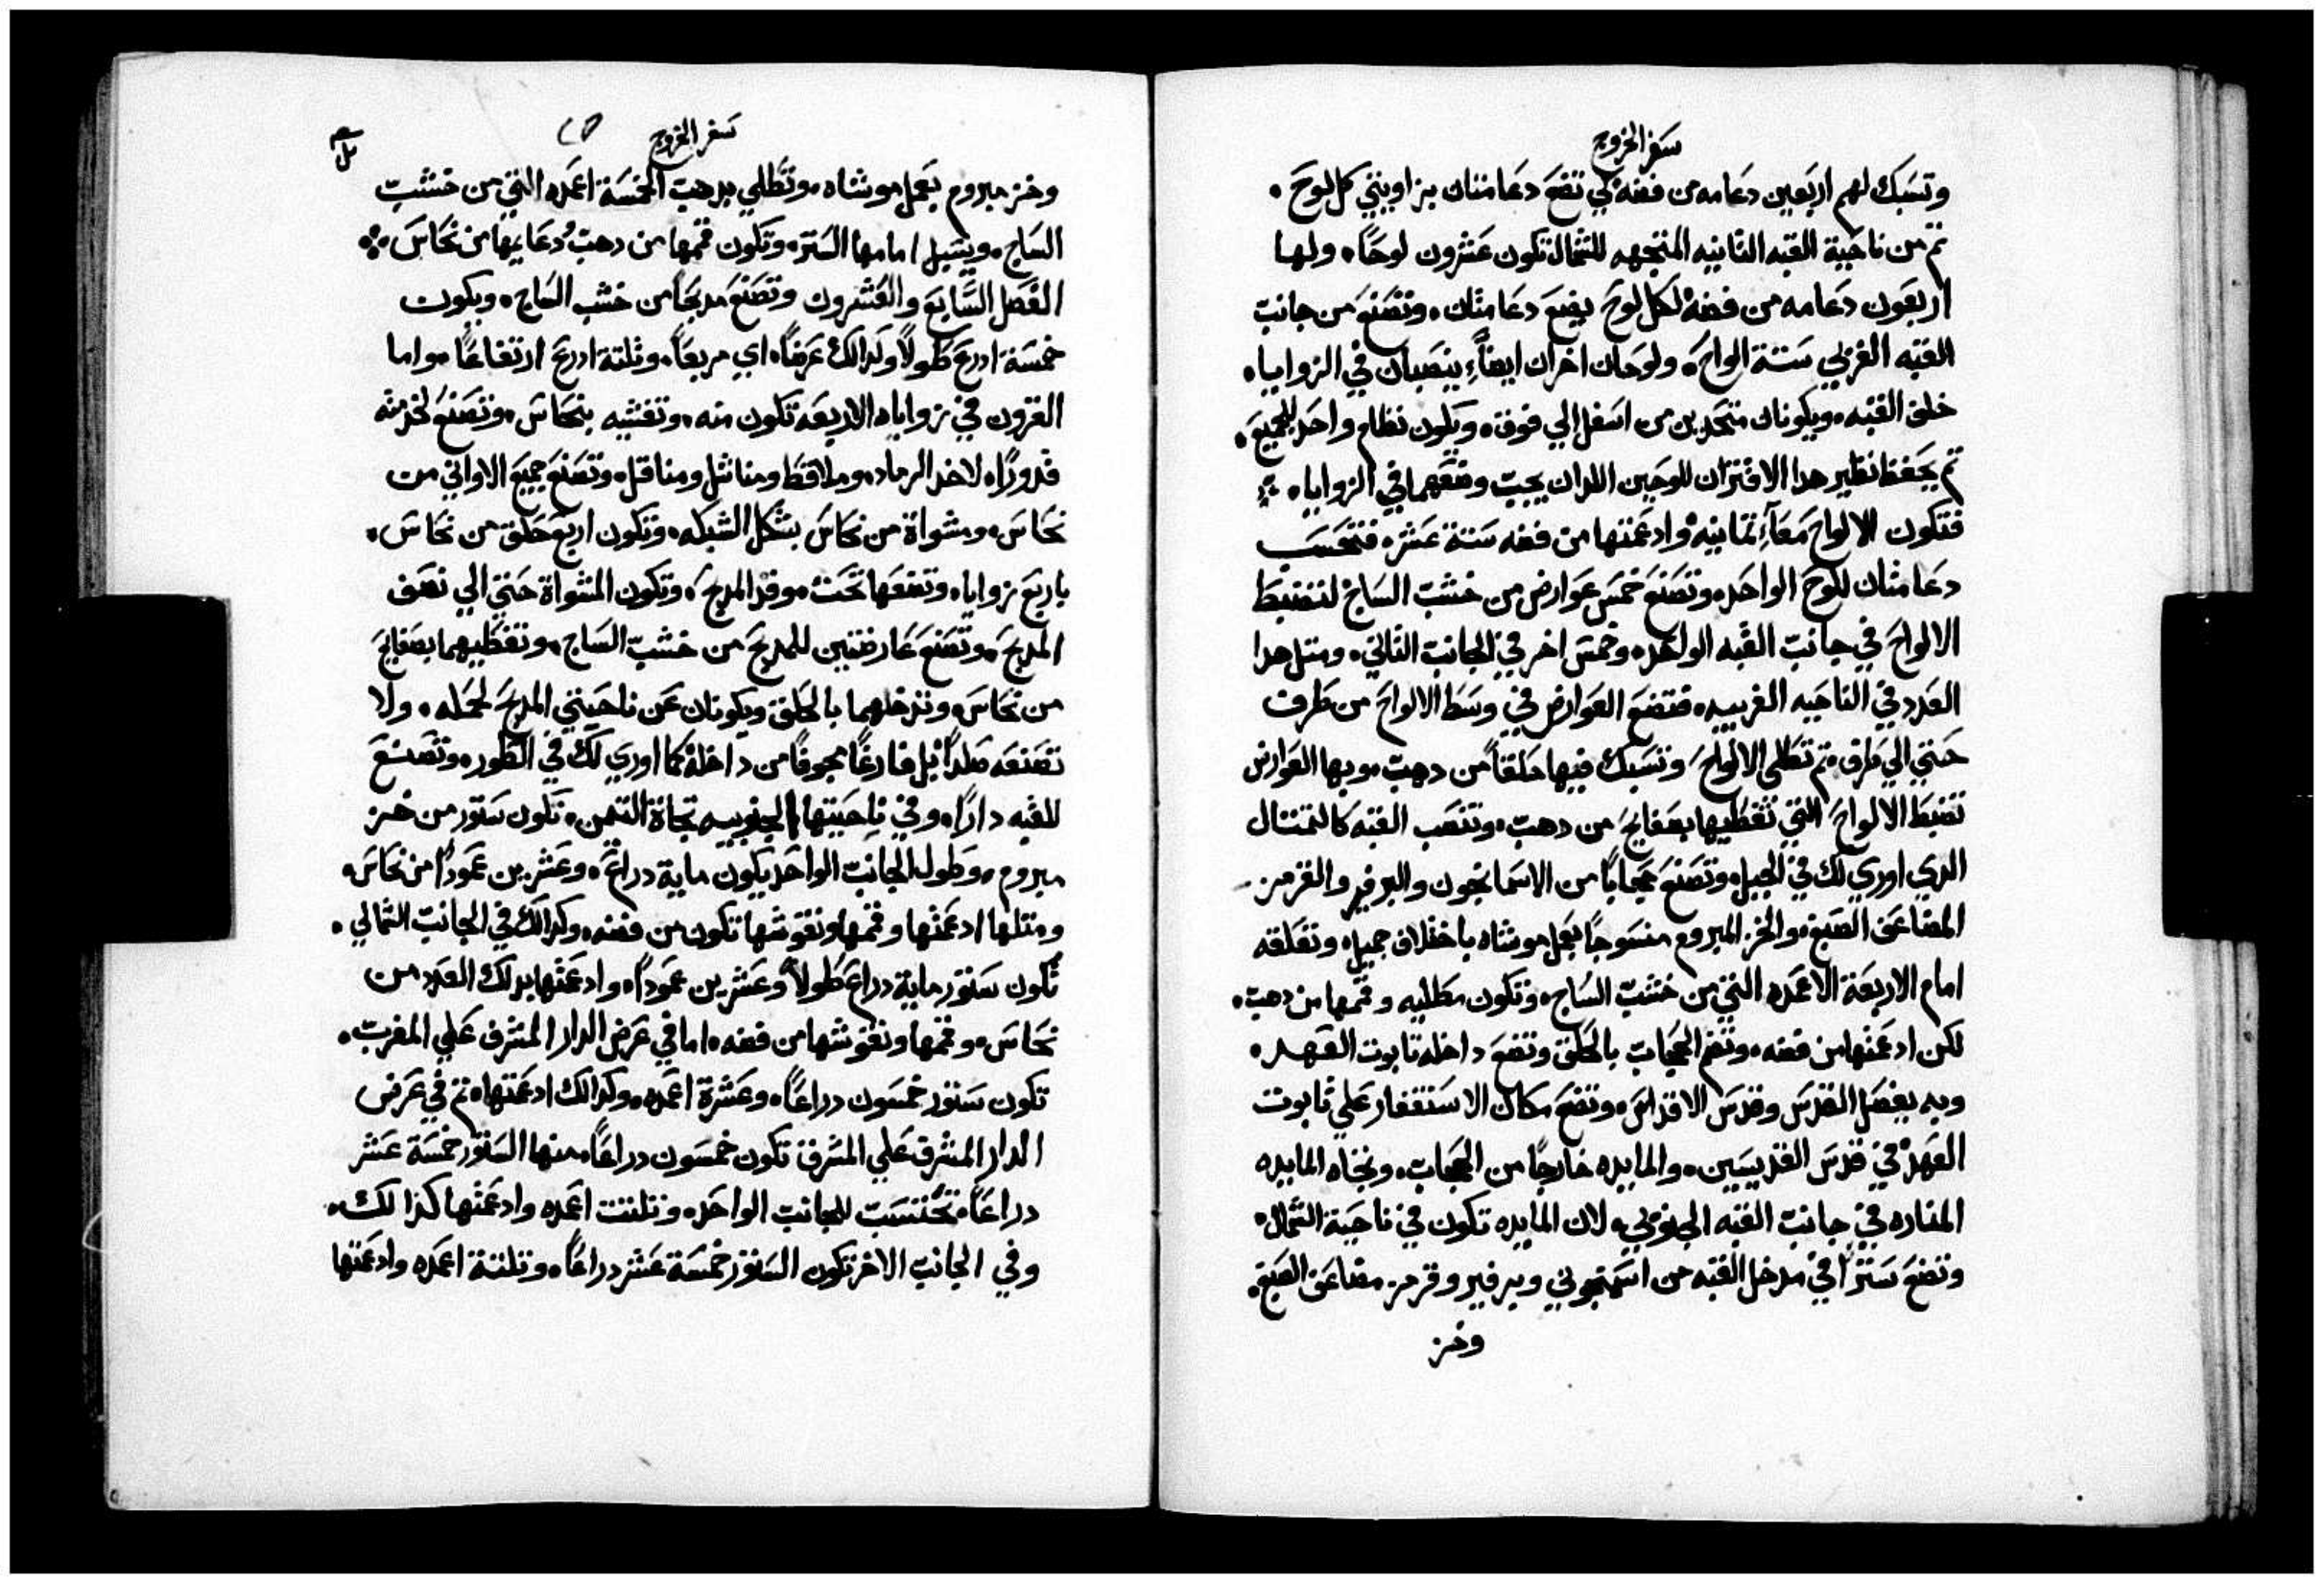 سفر الخروج
وتسبك لهم اربعين دعامه من فضه لكي تضع دعامتان بزاويتي كل لوح.
ثم من ناحية القبه الثانيه المتجهه للشمال تكون عشرون لوحًا. ولها
اربعون دعامه من فضه لكل لوح يضع دعامتان. وتصنع من جانب
القبه الغربي ستة الواح. ولوحان اخران ايضًا ينصبان في الزوايا.
خلف القبه. ويكونان متحدين من اسفل الي فوق. ويكون نظام واحد للجميع.
ثم يحفظ نظير هدا الاقتران للوحين اللدان يجب وضعهما في الزوايا.
فتكون الالواح معًا تمانيه وادعمتها من فضه ستة عشر. فتحسب
دعامتان للوح الواحد. وتصنع خمس عوارض من خشب الساج لتضبط
الالواح في جانب القبه الواحد. وخمس اخر في الجانب الثاني. ومتل هدا
العدد في الناحيه الغربيه. فتضع العوارض في وسط الالواح من طرف
حتي الي طرف. ثم تطلي الالواح وتسبك فيها حلقًا من دهب. وبها العوارض
تضبط الالواح التي تغطيها بصفايح من دهب. وتنصب القبه كالتمتال
الدي اوري لك في الجبل. وتصنع حجابًا من الاسمانجون والبرفير والقرمز
المضاعف الصبغ. والخز المبروم منسوجًا بعمل موشاه باختلاف جميل. وتعلقه
امام الاربعة الاعمده التي من خشب الساج. وتكون مطليه وقممها من دهب.
لكن ادعمتها من فضه. وتضم الحجاب بالحلق وتضع داخله تابوت العهد.
وبه يفصل القدس وقدس الاقداس. وتضع مكان الاستغفار علي تابوت
العهد في قدس القديسين. والمايده خارجًا من الحجاب. وتجاه المايده
المناره في جانب القبه الجنوبي. لان المايده تكون في ناحية الشمال.
وتضع سترًا في مدخل القبه من اسمنجوني وبرفير وقرمز مضاعف الصبغ.
وخز
سفر الخروج
وخز مبروم بعمل موشاه. وتطلي بدهب الخمسة اعمده التي من خشب
الساج. ويسبل امامها الستر. وتكون قممها من دهب ودعايمها من نحاس.
الفصل السابع والعشرون وتصنع مدبحًا من خشب الساج. ويكون
خمسة ادرع طولاً وكدالك عرضًا. اي مربعًا. وثلتة ادرع ارتفاعًا. واما
القرون في زواياه الاربعه تكون منه. وتغشيه بنحاس. وتصنع لخدمته
قدورًا. لاخد الرماد. وملاقط ومناشل ومناقل. وتصنع جميع الاواني من
نحاس. ومشواة من نحاس بشكل الشبكه. وتكون اربع حلق من نحاس.
باربع زوايا. وتضعها تحت موقد المدبح. وتكون المشواة حتي الي نصف
المدبح. وتصنع عارضتين للمدبح من خشب الساج. وتغطيهما بصفايح
من نحاس. وتدخلهما بالحلق ويكونان عن ناحيتي المدبح لحمله. ولا
تصنعه صلدًا بل فارغًا مجوفًا من داخله كما اوري لك في الطور. وتصنع
للقبه دارًا. وفي ناحيتها الجنوبيه تجاة التيمن. تكون ستور من خز
مبروم. وطول الجانب الواحد يكون ماية دراع. وعشرين عمودًا من نحاس.
ومتلها ادعمتها وقممها ونقوشها تكون من فضه. وكدالك في الجانب الشمالي.
تكون ستور ماية دراع طولاً وعشرين عمودًا. وادعمتها بدلك العدد من
نحاس. وقممها ونقوشها من فضه. اما في عرض الدار المشرف علي المغرب.
تكون ستور خمسون دراعًا. وعشرة اعمده. وكدالك ادعمتها. ثم في عرض
الدار المشرف علي المشرق تكون خمسون دراعًا. منها الستور خمسة عشر
دراعًا. تحتسب للجانب الواحد. وتلتت اعمده وادعمتها كذالك.
وفي الجانب الاخر تكون الستور خمسة عشر دراعًا. وتلتة اعمده وادعمتها